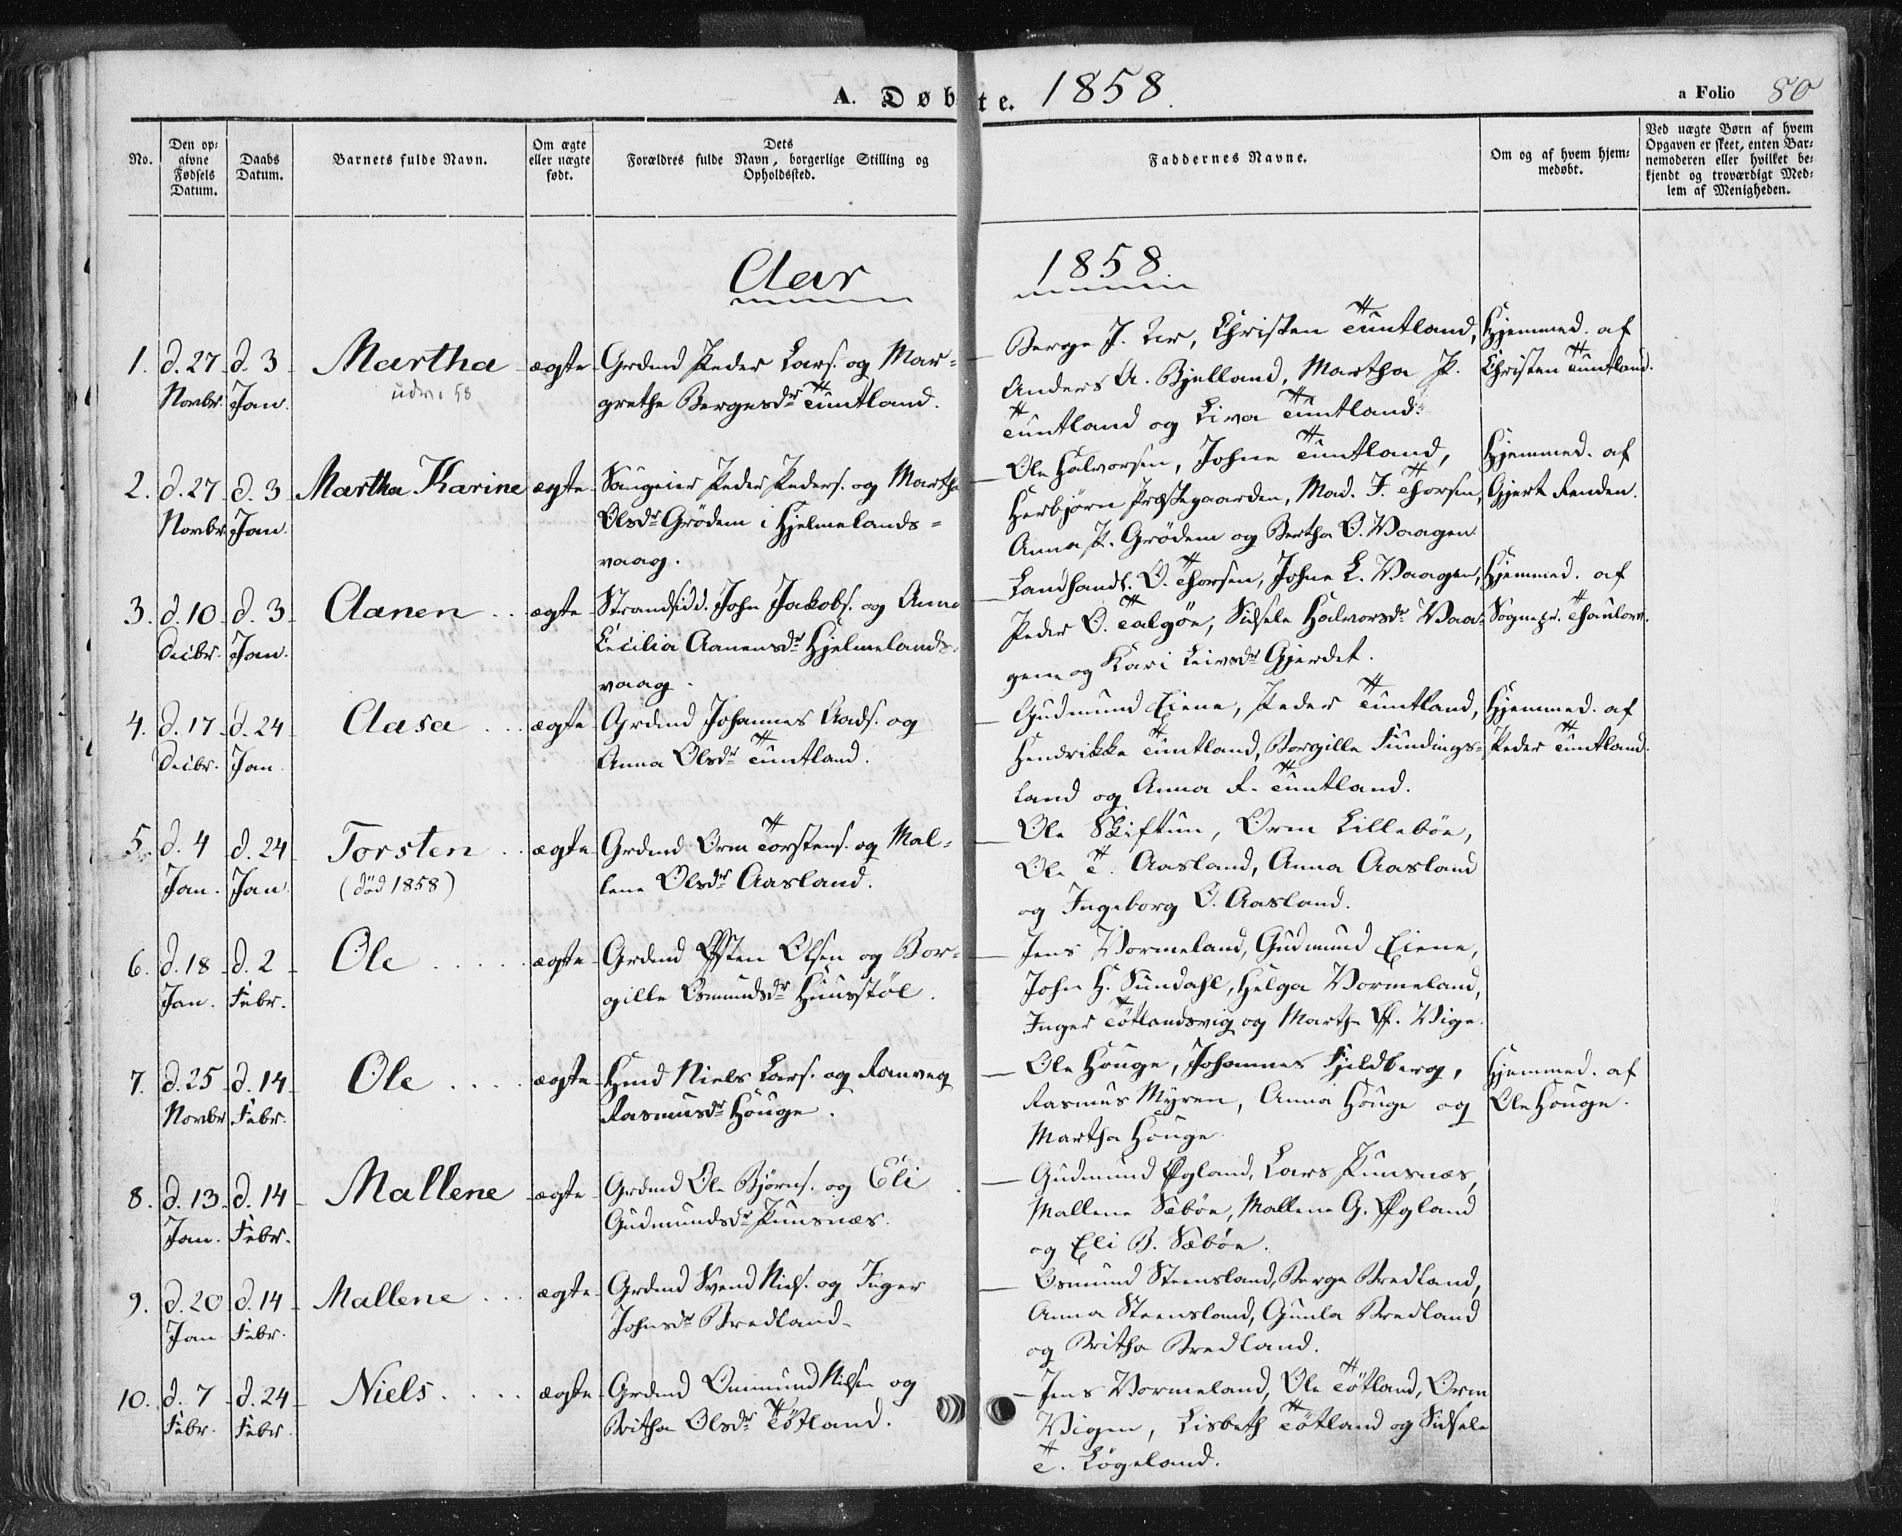 A. Døbte. 1858. a Folio 80
No.
Den opgivne Fødsels Datum.
Daabs Datum.
Barnets fulde Navn.
Om ægte eller uægte født.
Dets Forældres fulde Navn, borgerlige Stilling og Opholdssted.
Faddernes Navne.
Om og af hvem hjemmedøbt.
Ved uægte Børn af hvem Opgaven er skeet, enten Barnemoderen eller hvilket bekjendt og troværdigt Medlem af Menigheden.
Aar 1858.
1. d. 27 Novbr. d. 3 Jan. Martha ægte Grdmd Peder Lars. og Mar-
grethe Bergesdr Tuntland.
Berge J. , Christen Tuntland,
Anders A. Bjelland, Martha P.
Tuntland og Siva Tuntland.
Hjemmed. af
Christen Tuntland.
2. d. 27 Novbr d. 3 Jan. Martha Karine ægte Peder Peders. og Martha
Olsdr Grödem i Hjelmelands-
vaag.
Ole Halvorsen, Johne Tuntland,
Herbjörn Præstegaarden, Mad. J. Thorsen,
Anna P. Grödem og Bertha O. Vaagen.
Hjemmed. af
Gjert Renden.
3. d. 10 Decbr. d. 3 Jan. Aanen ægte Strandsidd. John Jakobs. og Anna
Cecilia Aanensdr Hjelmelands-
vaag.
Landhandl. O. Thorsen, Johne L. Vaagen,
Peder O. Talgöe, Sidsele Halvorsdr Vaa-
gene og Kari Leivsdr Gjerdet.
Hjemmed. af
Sognepr. Thaulow.
4. d. 17 Decbr. d. 24 Jan. Aasa ægte Grdmd Johannes Aads. og
Anna Olsdr Tuntland.
Gudmund Eiene, Peder Tuntland,
Hendrikke Tuntland, Borgille Fundings-
land og Anna R. Tuntland.
Hjemmed. af
Peder Tuntland.
5. d. 4 Jan. d. 24 Jan. Torsten (död 1858) ægte Grdmd Orm Torstens. og Mal-
lene Olsdr Aasland.
Ole Skiftun, Orm Lillebøe,
Ole T. Aasland, Anna Aasland
og Ingeborg O. Aasland.
6. d. 18 Jan. d. 2 Febr. Ole ægte Grdmd Østen Olsen og Bor-
gille Osmundsdr Huusstöl.
Jens Vormeland, Gudmund Eiene,
John H. Sundahl, Helga Vormeland,
Inger Tötlandsvig og Martha Ø. Vige.
7. d. 25 Novbr d. 14 Febr. Ole ægte Hmd Niels Lars. og Ranveg
Rasmusdr Houge.
Ole Houge, Johannes Fjeldberg,
Rasmus Myren, Anna Houge og
Martha Houge.
Hjemmed. af
Ole Houge.
8. d. 13 Jan. d. 14 Febr. Mallene ægte Grdmd Ole Björns. og Eli
Gudmundsdr Puntsnæs.
Gudmund Øgland, Lars Puntsnæs,
Mallene Sæböe, Mallene G. Øgland
og Eli B. Sæböe.
9. d. 20 Jan d. 14 Febr. Mallene ægte Grdmd Svend Niels. og Inger
Johnsdr Bredland.
Osmund Steensland, Berge Bredland,
Anna Steensland, Gunla Bredland
og Britha Bredland.
10. d. 7 Febr. d. 24 Febr. Niels ægte Grdmd Ommund Nilsen og
Britha Olsdr Tötland.
Jens Vormeland, Ole Tötland, Orm
Vigen, Lisbeth Tötland og Sidsele
T. Lögeland.